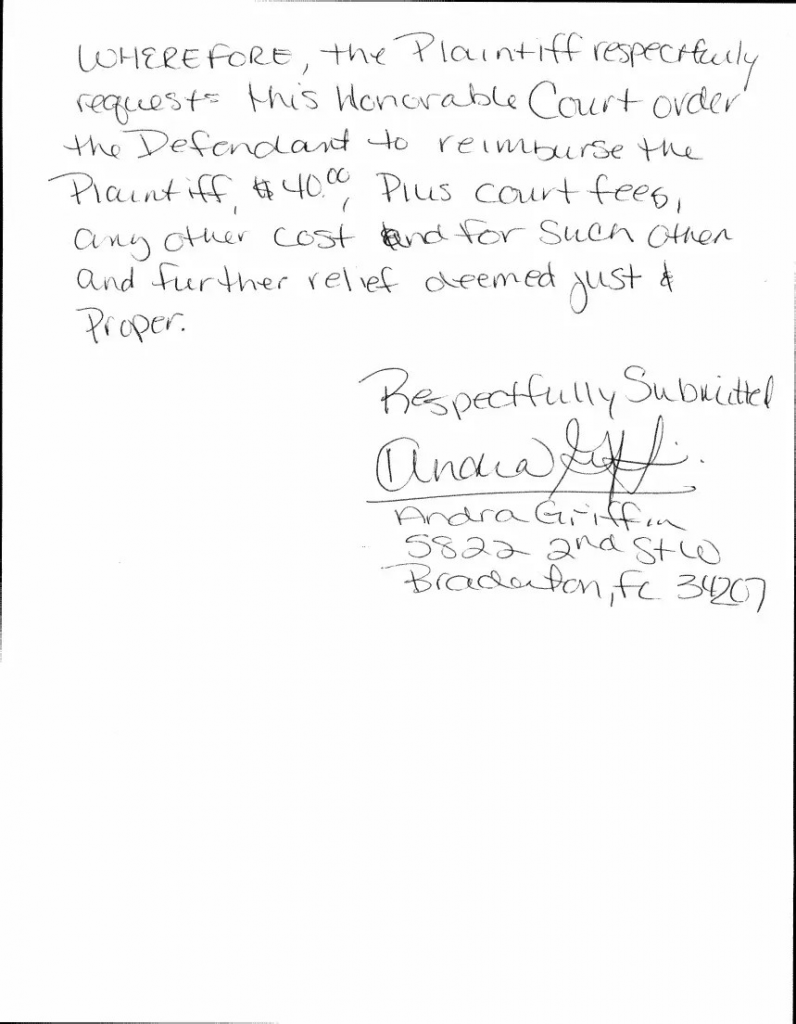 WHEREFORE, the Plaintiff respectfully
requests this Honorable Court order
the Defendant to reimburse the
Plaintiff, $40.00, Plus court fees,
any other cost and for such other
and further relief deemed just &
Proper.
Respectfully Submitted
Andra Griffin
Andra Griffin
5822 2nd St W
Bradenton, FL 34207